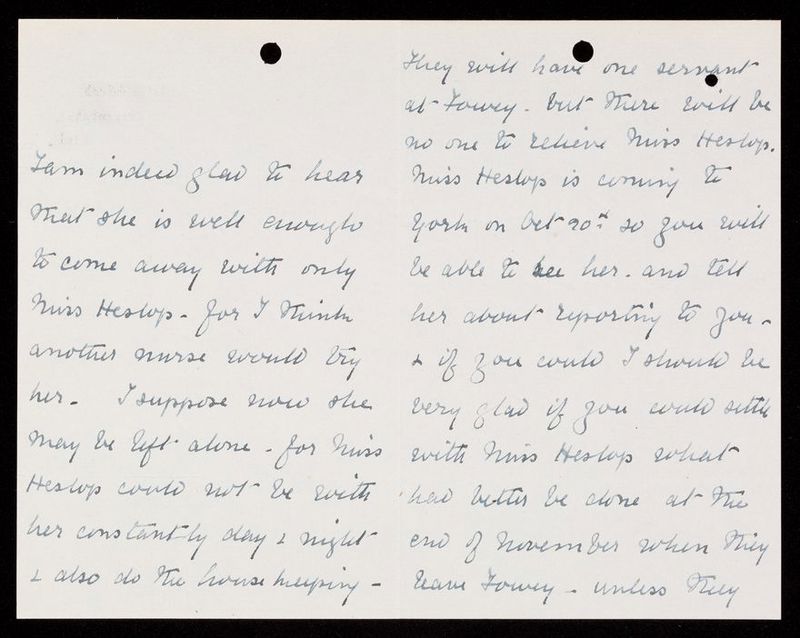 I am indeed glad to hear
that she is well enough
to come away with only
Miss Heslop - for I think
another nurse would try
her - I suppose now she
may be left alone - for Miss
Heslop could not be with
her constantly day & night
& also do the house keeping -
They will have one servant
at Fowey - but there will be
no one to relieve Miss Heslop.
Miss Heslop is coming to
York on Oct 20th so you will
be able to see her - and tell
her about reporting to you -
& if you could I should be
very glad if you could settle
with Miss Heslop what
had better be done at the
end of November when they
leave Fowey - unless they